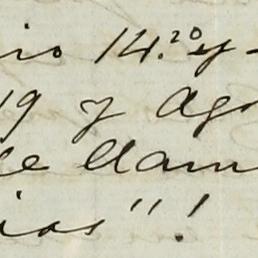 io 14.20 y
19 y Ago
de llam
ias"!